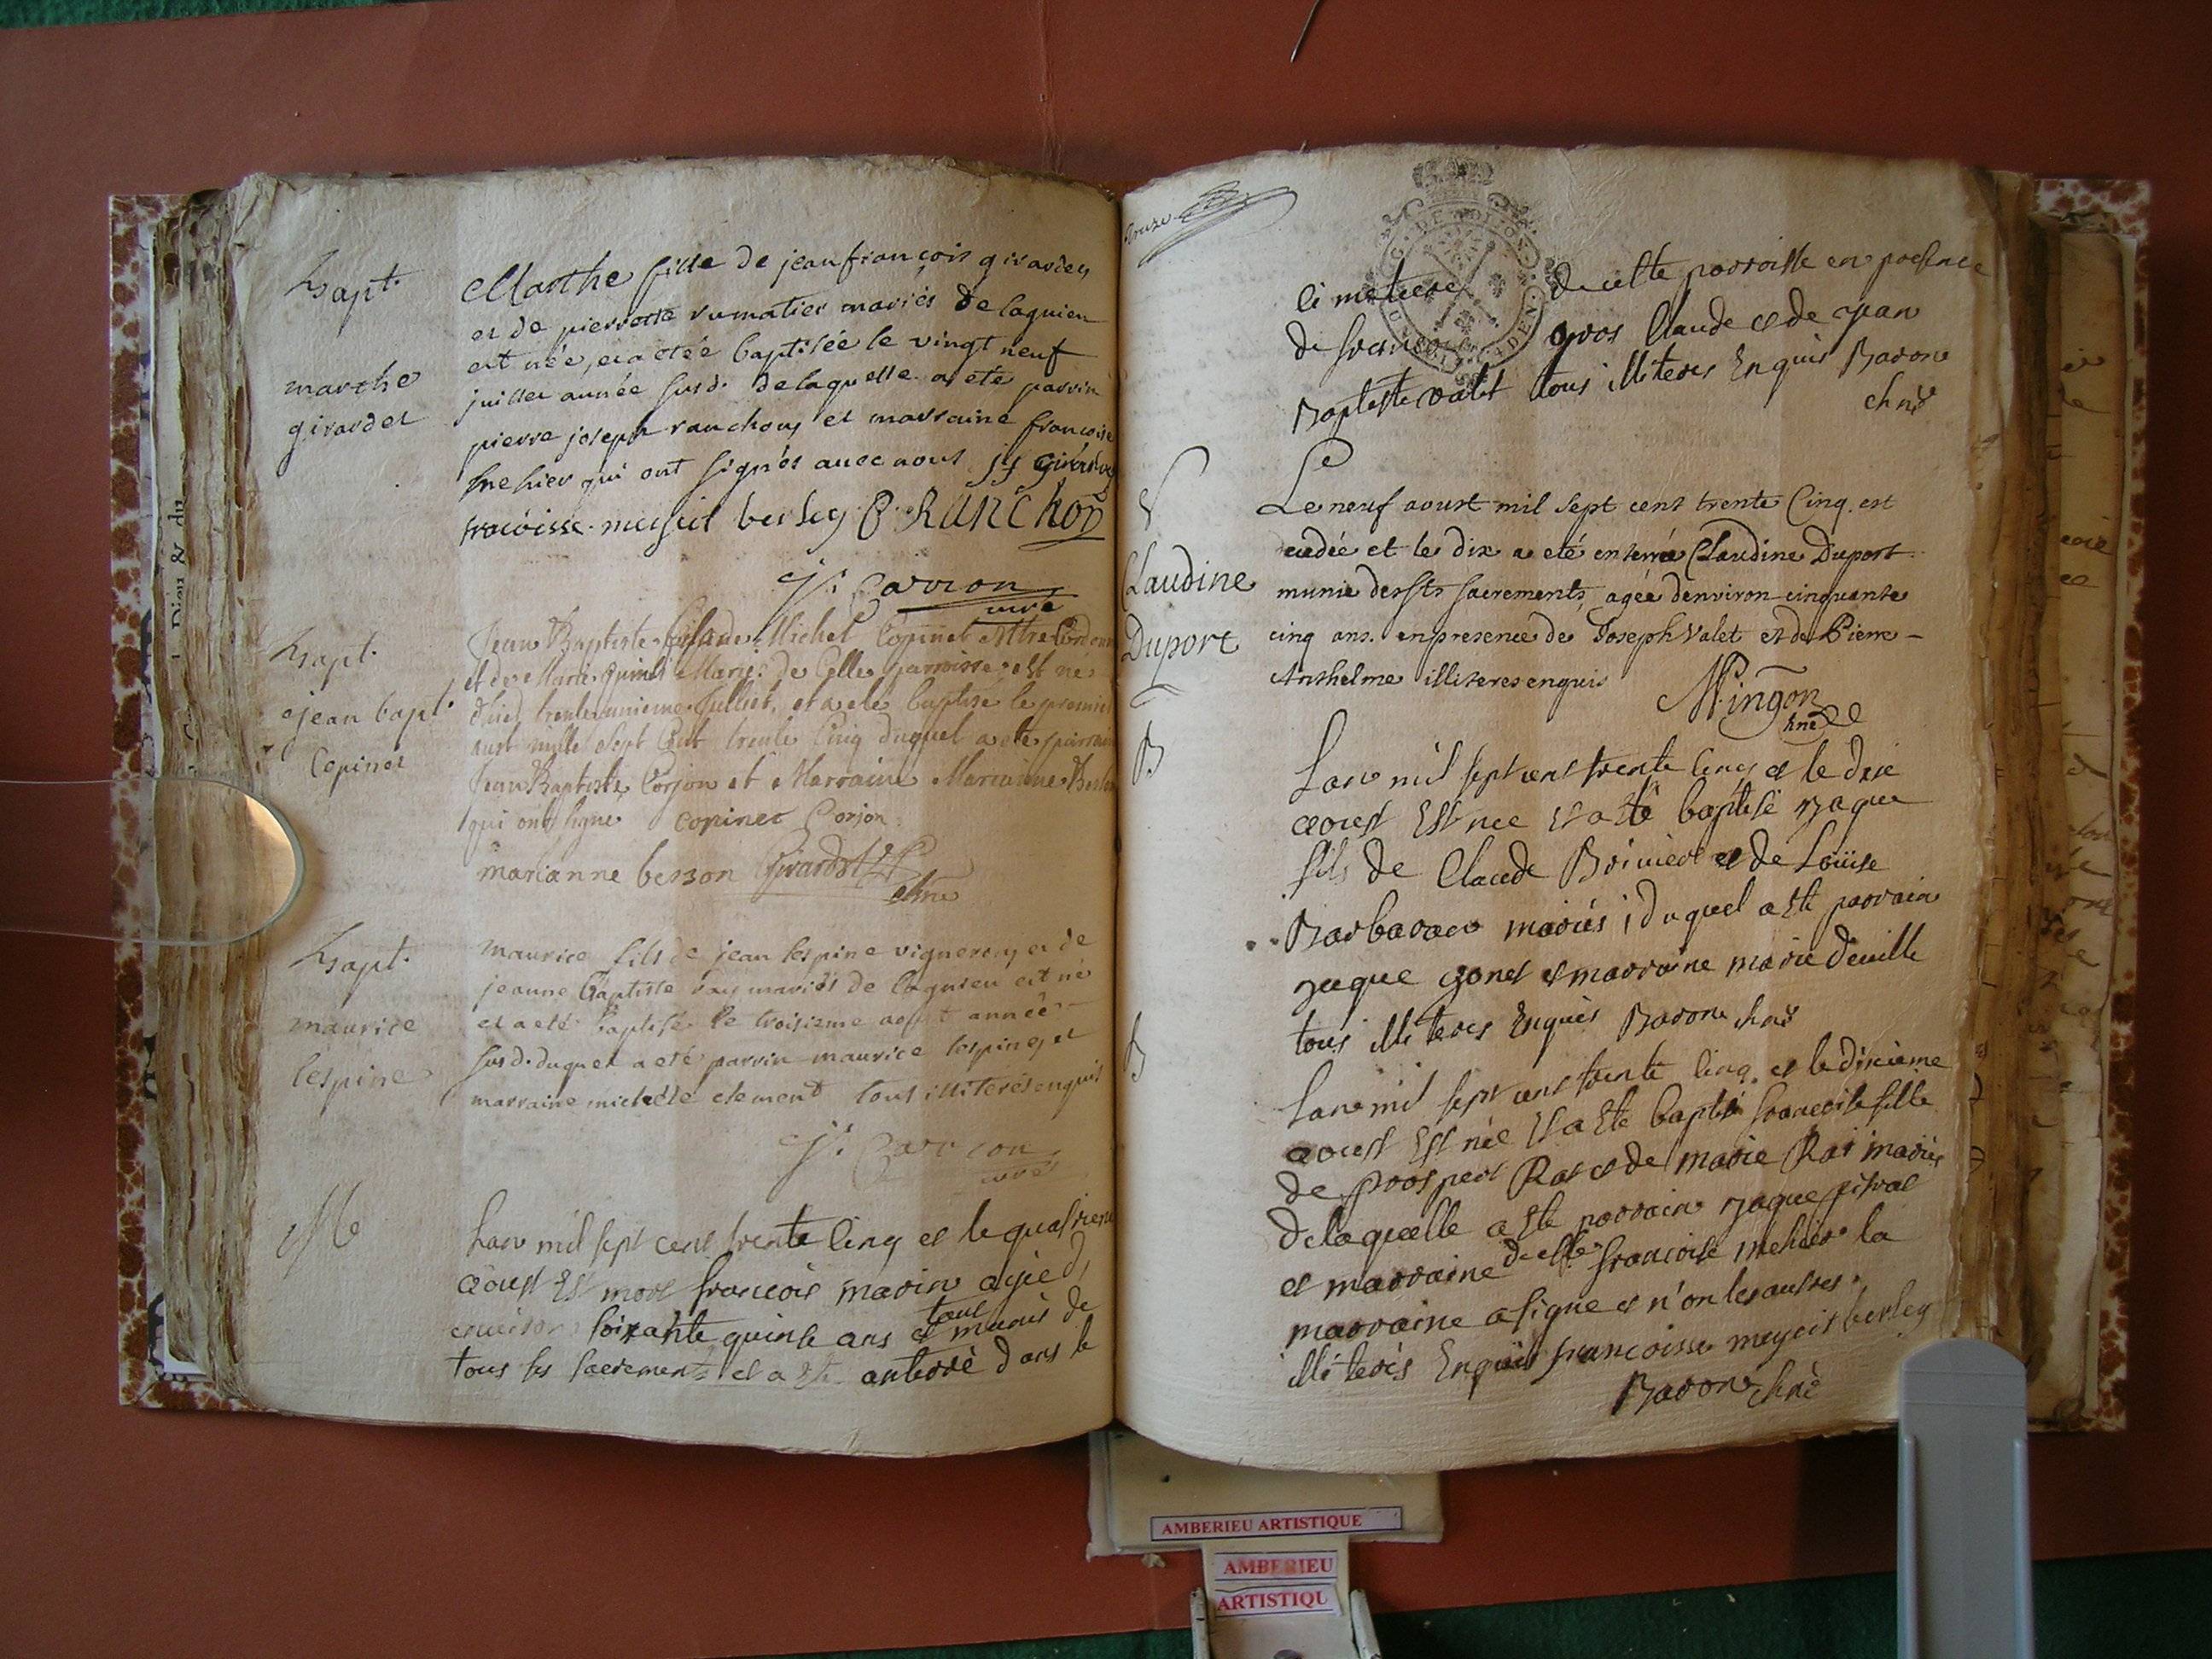 bapt.
marthe
girardet
Marthe fille de jean françois girardet
et de pierrotte rumatier mariés de lagnieu
est née, et a etée baptisée le vingt neuf
juillet année susd. de laquelle a eté parrin
pierre joseph ranchon et marraine francoise
qui ont signés avec nous
P RANCHON
j. Carron
curé
bapt.
jean bapt.
Copinet
Jean Baptiste fils de Michel Copinet Mtre
et de Marie mariés de Cette parroisse est né
trente unieme Julliet, et a ete baptisé le premier
aust mille sept Cent trente Cinq duquel a ete parrain
Jean Baptiste Corjon et Marraine Marianne
qui ont signe copinet Corjon
marianne berson Girardet
bapt.
maurice
lespine
maurice fils de jean lespine vigneron et de
jeanne baptiste mariés de lagnieu est né
et a eté baptisé le troisieme aoust année
susd. duquel a eté parrin maurice lespine et
marraine michelle clement tous illiterés enquis
j. Carron
curé
Lan mil sept cent trente cinq et le quatrieme
aoust Est mort francois marin agé d
environ soixante quinse ans et munis de
tous
tous les sacrements et a ete anterré dans le
cimetiere de cette parroisse en presence
de francois gros Claude et de jean
Baptiste valet tous illiteres Enquis Baron
Claudine
Duport
Le neuf aoust mil sept cent trente Cinq. est
cedée et le dix a eté enterrée Claudine Duport
munie des sts sacrements, agée denviron cinquante
cinq ans. en presence de Joseph Valet et de Pierre
Anthelme illiteres enquis
Mingon
B
Lan mil sept cent trente cinq et le dix
aoust Est nee Et a Eté baptisé Jaque
fils de Claude et de Louise
mariés, duquel a Eté parrain
Jaque gonet et marraine marie deville
tous illiteres Enquis Baron
b
Lan mil sept cent trente cinq. et le dixieme
aoust Est née Et a Eté francoise fille
de prosper Rat et de marie Rai mariés
de laquelle a Eté parrain Jaque
et marraine delle francoise la
marraine a signe et n'on les autres
illiterés Enquis francoisse berlex
Baron
AMBERIEU ARTISTIQUE
AMBERIEU
ARTISTIQU